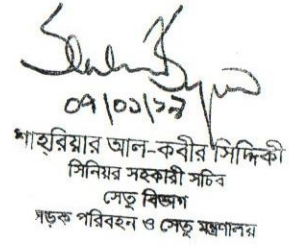 শাহরিয়ার আল-কবীর সিদ্দিকী
সিনিয়র সহকারী সচিব
সেতু বিভাগ
সড়ক পরিবহন ও সেতু মন্ত্রণালয়